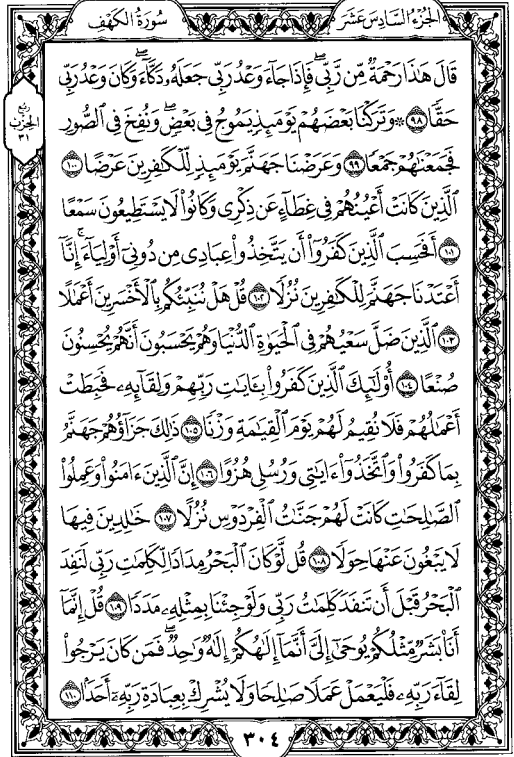 الجزء السادس عشر
سورة الكهف
ربع
الحزب
٣١
قَالَ هَٰذَا رَحْمَةٌ مِّن رَّبِّي ۖ فَإِذَا جَآءَ وَعْدُ رَبِّي جَعَلَهُۥ دَكَّآءَ ۖ وَكَانَ وَعْدُ رَبِّي
حَقًّا ٩٨ ۞ وَتَرَكْنَا بَعْضَهُمْ يَوْمَئِذٍ يَمُوجُ فِي بَعْضٍ ۖ وَنُفِخَ فِي ٱلصُّورِ
فَجَمَعْنَٰهُمْ جَمْعًا ٩٩ وَعَرَضْنَا جَهَنَّمَ يَوْمَئِذٍ لِّلْكَٰفِرِينَ عَرْضًا ١٠٠
ٱلَّذِينَ كَانَتْ أَعْيُنُهُمْ فِي غِطَآءٍ عَن ذِكْرِي وَكَانُوا۟ لَا يَسْتَطِيعُونَ سَمْعًا
١٠١ أَفَحَسِبَ ٱلَّذِينَ كَفَرُوٓا۟ أَن يَتَّخِذُوا۟ عِبَادِي مِن دُونِيٓ أَوْلِيَآءَ ۚ إِنَّآ
أَعْتَدْنَا جَهَنَّمَ لِلْكَٰفِرِينَ نُزُلًا ١٠٢ قُلْ هَلْ نُنَبِّئُكُم بِٱلْأَخْسَرِينَ أَعْمَٰلًا
١٠٣ ٱلَّذِينَ ضَلَّ سَعْيُهُمْ فِي ٱلْحَيَوٰةِ ٱلدُّنْيَا وَهُمْ يَحْسَبُونَ أَنَّهُمْ يُحْسِنُونَ
صُنْعًا ١٠٤ أُو۟لَٰٓئِكَ ٱلَّذِينَ كَفَرُوا۟ بِـَٔايَٰتِ رَبِّهِمْ وَلِقَآئِهِۦ فَحَبِطَتْ
أَعْمَٰلُهُمْ فَلَا نُقِيمُ لَهُمْ يَوْمَ ٱلْقِيَٰمَةِ وَزْنًا ١٠٥ ذَٰلِكَ جَزَآؤُهُمْ جَهَنَّمُ
بِمَا كَفَرُوا۟ وَٱتَّخَذُوٓا۟ ءَايَٰتِي وَرُسُلِي هُزُوًا ١٠٦ إِنَّ ٱلَّذِينَ ءَامَنُوا۟ وَعَمِلُوا۟
ٱلصَّٰلِحَٰتِ كَانَتْ لَهُمْ جَنَّٰتُ ٱلْفِرْدَوْسِ نُزُلًا ١٠٧ خَٰلِدِينَ فِيهَا
لَا يَبْغُونَ عَنْهَا حِوَلًا ١٠٨ قُل لَّوْ كَانَ ٱلْبَحْرُ مِدَادًا لِّكَلِمَٰتِ رَبِّي لَنَفِدَ
ٱلْبَحْرُ قَبْلَ أَن تَنفَدَ كَلِمَٰتُ رَبِّي وَلَوْ جِئْنَا بِمِثْلِهِۦ مَدَدًا ١٠٩ قُلْ إِنَّمَآ
أَنَا۠ بَشَرٌ مِّثْلُكُمْ يُوحَىٰٓ إِلَيَّ أَنَّمَآ إِلَٰهُكُمْ إِلَٰهٌ وَٰحِدٌ ۖ فَمَن كَانَ يَرْجُوا۟
لِقَآءَ رَبِّهِۦ فَلْيَعْمَلْ عَمَلًا صَٰلِحًا وَلَا يُشْرِكْ بِعِبَادَةِ رَبِّهِۦٓ أَحَدًا ١١٠
٣٠٤